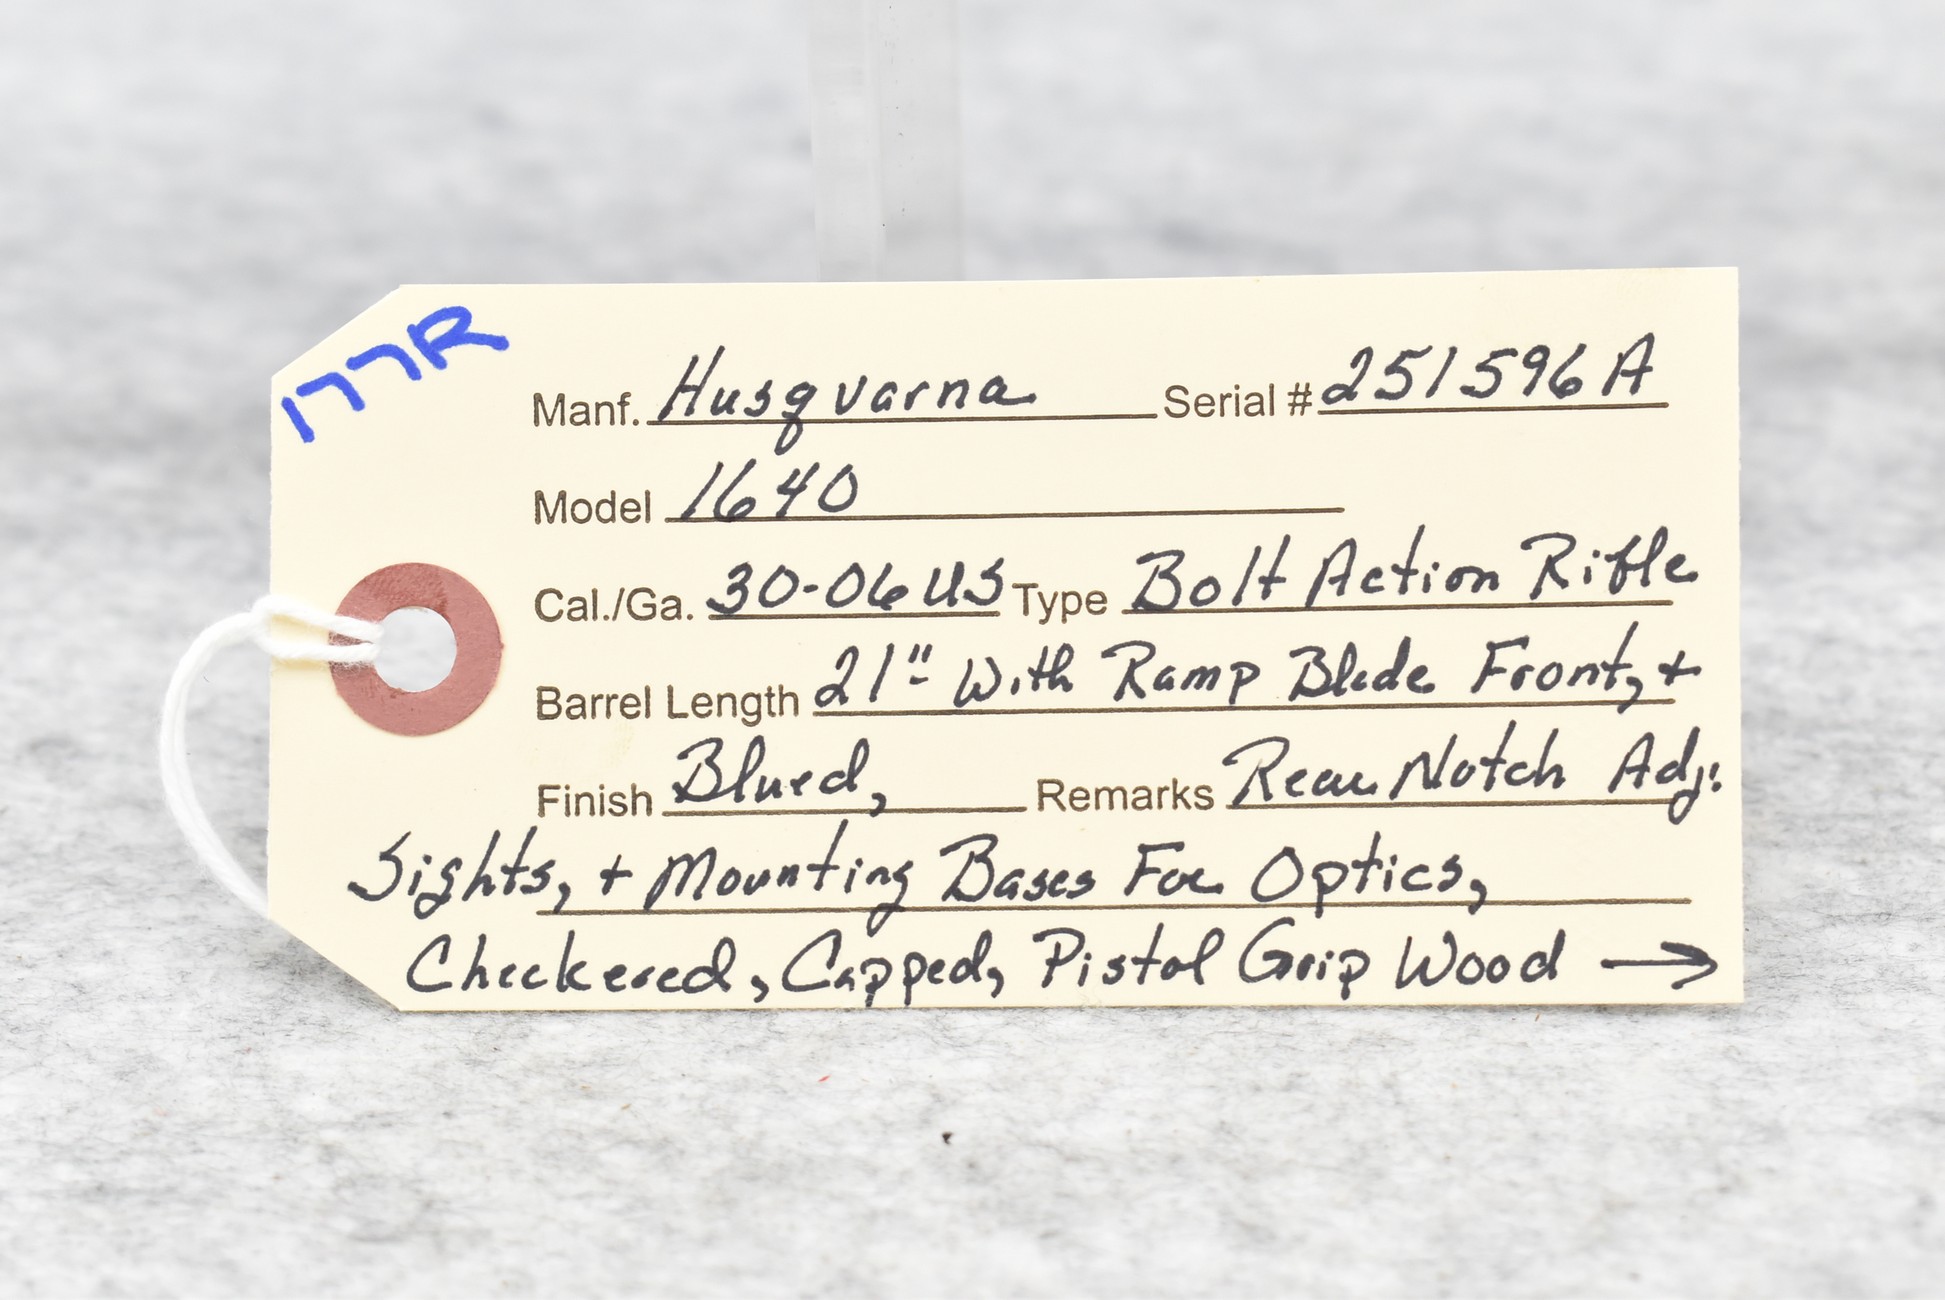 177R
Manf. Husqvarna Serial # 251596A
Model 1640
Cal./Ga. 30-06 US Type Bolt Action Rifle
Barrel Length 21" With Ramp Blade Front, +
Finish Blued, Remarks Rear Notch Adj.
Sights, + Mounting Bases For Optics,
Checkered, Capped, Pistol Grip Wood →